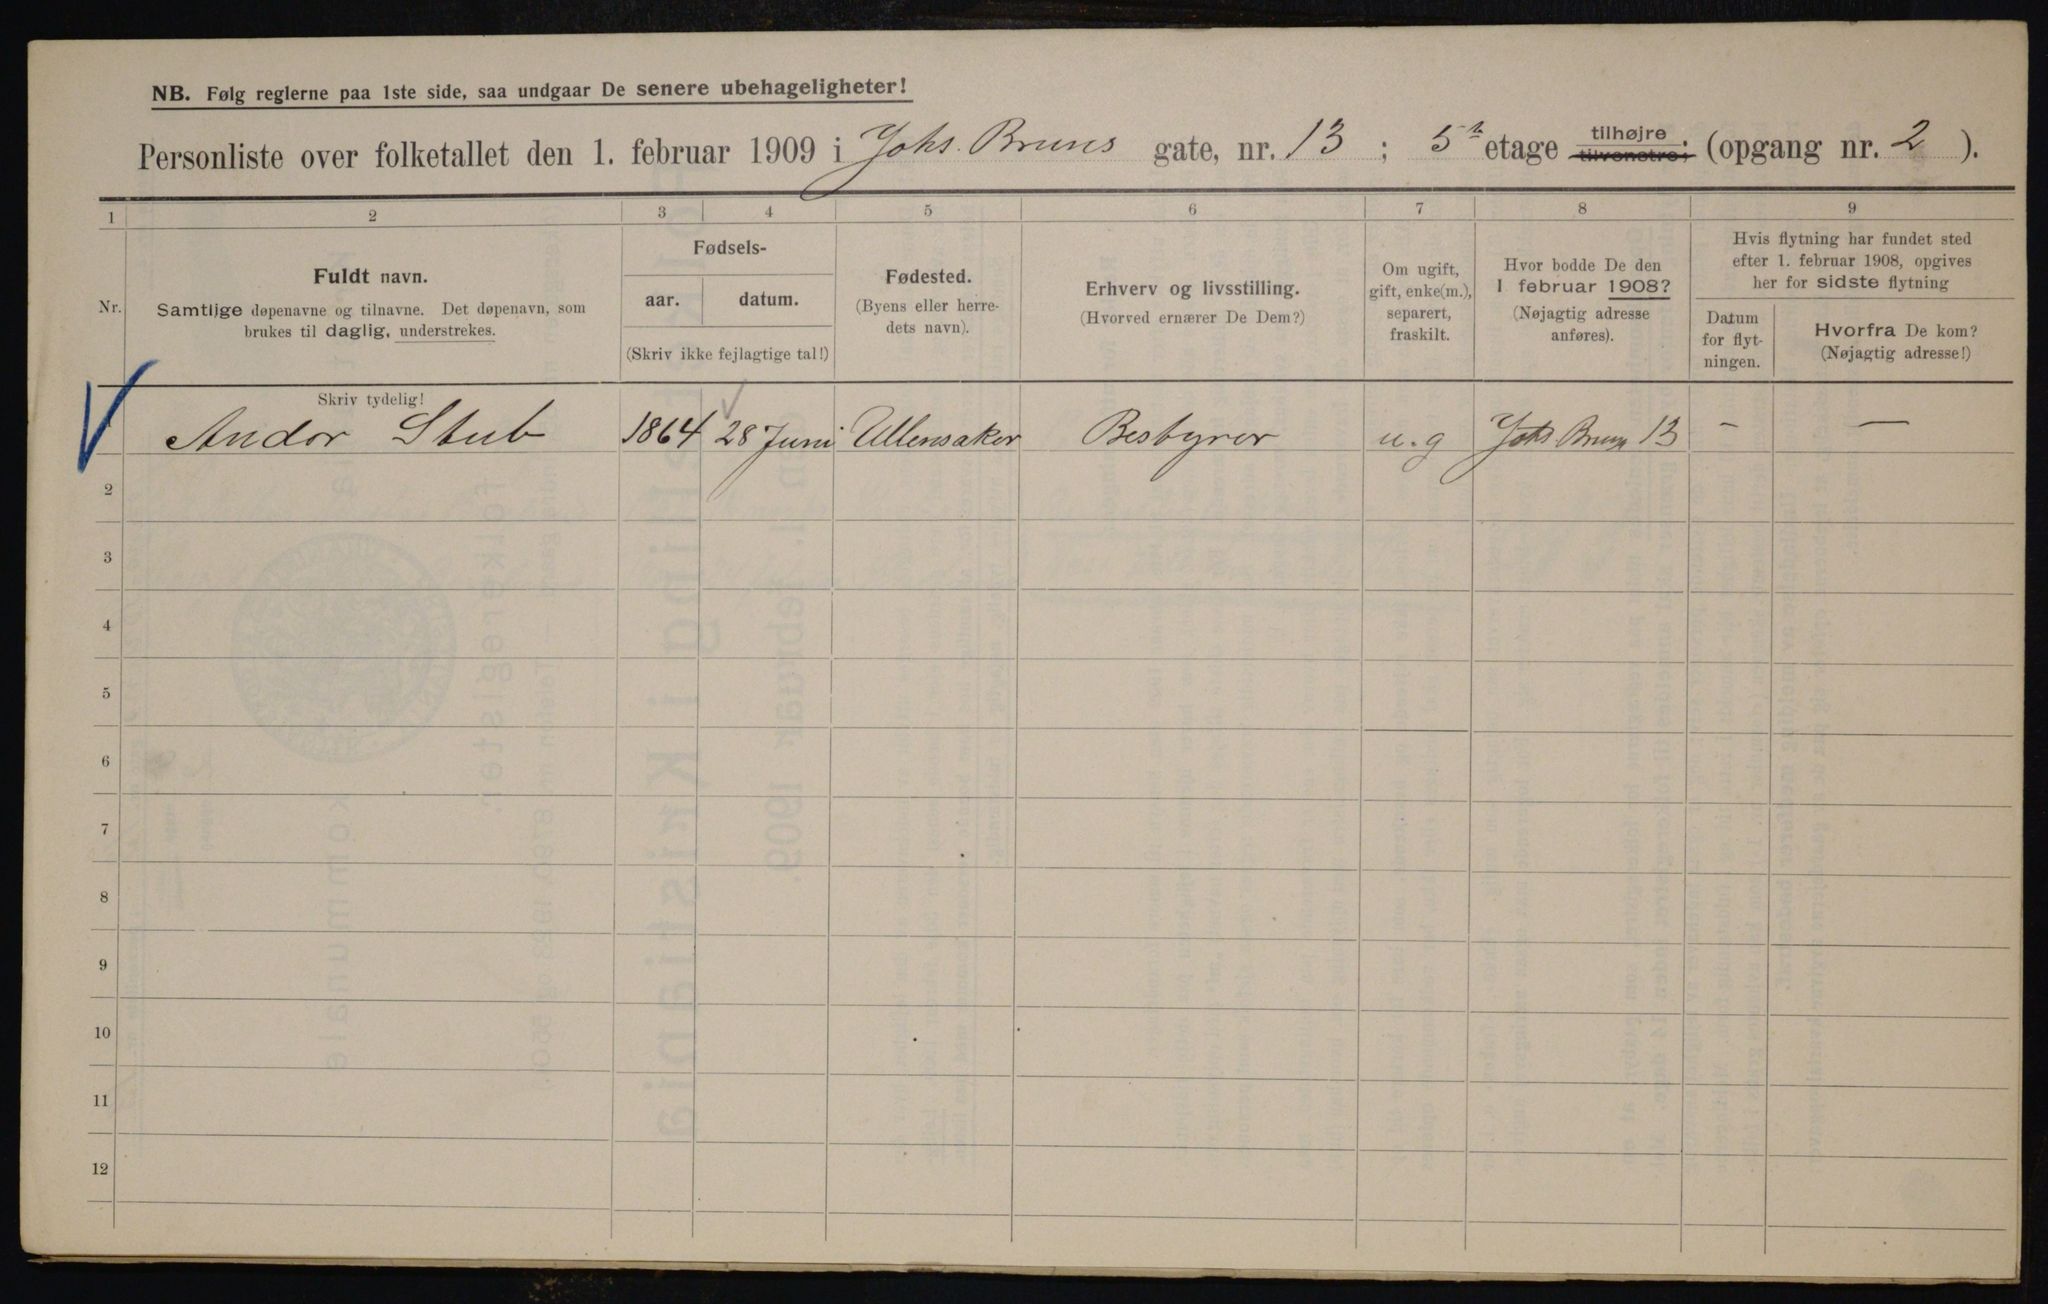 NB. Følg reglerne paa 1ste side, saa undgaar De senere ubehageligheter!
Personliste over folketallet den 1. februar 1909 i Johs. Bruns gate, nr. 13 ; 5te etage tilhøjre tilvenstre; (opgang nr. 2 ).
1 2 3 4 5 6 7 8 9
Nr.
Fuldt navn.
Samtlige døpenavne og tilnavne. Det døpenavn, som
brukes til daglig, understrekes.
Fødsels-
aar. datum.
(Skriv ikke fejlagtige tal!)
Fødested.
(Byens eller herre-
dets navn).
Erhverv og livsstilling.
(Hvorved ernærer De Dem?)
Om ugift,
gift, enke(m.),
separert,
fraskilt.
Hvor bodde De den
1 februar 1908?
(Nøjagtig adresse
anføres).
Hvis flytning har fundet sted
efter 1. februar 1908, opgives
her for sidste flytning
Datum
for flyt-
ningen.
Hvorfra De kom?
(Nøjagtig adresse!)
Skriv tydelig!
Andor Stub 1864 28 Juni Ullensaker Bestyrer u.g Johs Bruns 13 – –
2
3
4
5
6
7
8
9
10
11
12